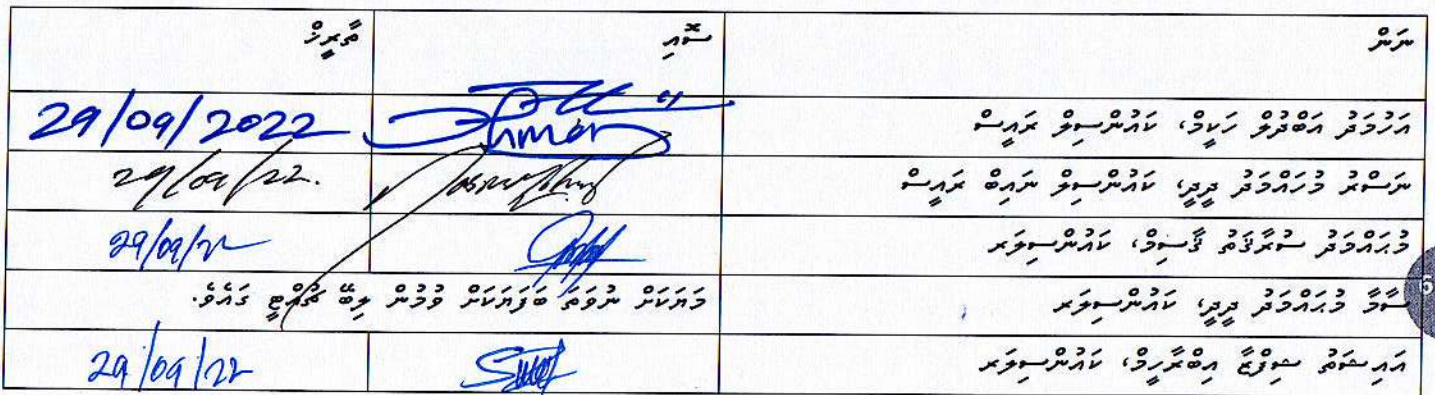 ނަން ސޮއި ތާރީޚް
އަޙުމަދު އަބްދުލް ހަކީމް، ކައުންސިލް ރައީސް 29/09/2022
ނަސްރު މުޙައްމަދު ދީދީ، ކައުންސިލް ނައިބް ރައީސް 29/09/22.
މުޙައްމަދު ސުރާޤަތު ޤާސިމް، ކައުންސިލަރ 29/09/22
ސާމާ މުޙައްމަދު ދީދީ، ކައުންސިލަރ މަޔަކަށް ނުވަތަ ބަފަޔަކަށް ވުމުން ލިބޭ ޗުއްޓީ ގައެވެ.
އައިޝަތު ޝިފްޒާ އިބްރާހީމް، ކައުންސިލަރ 29/09/22
5